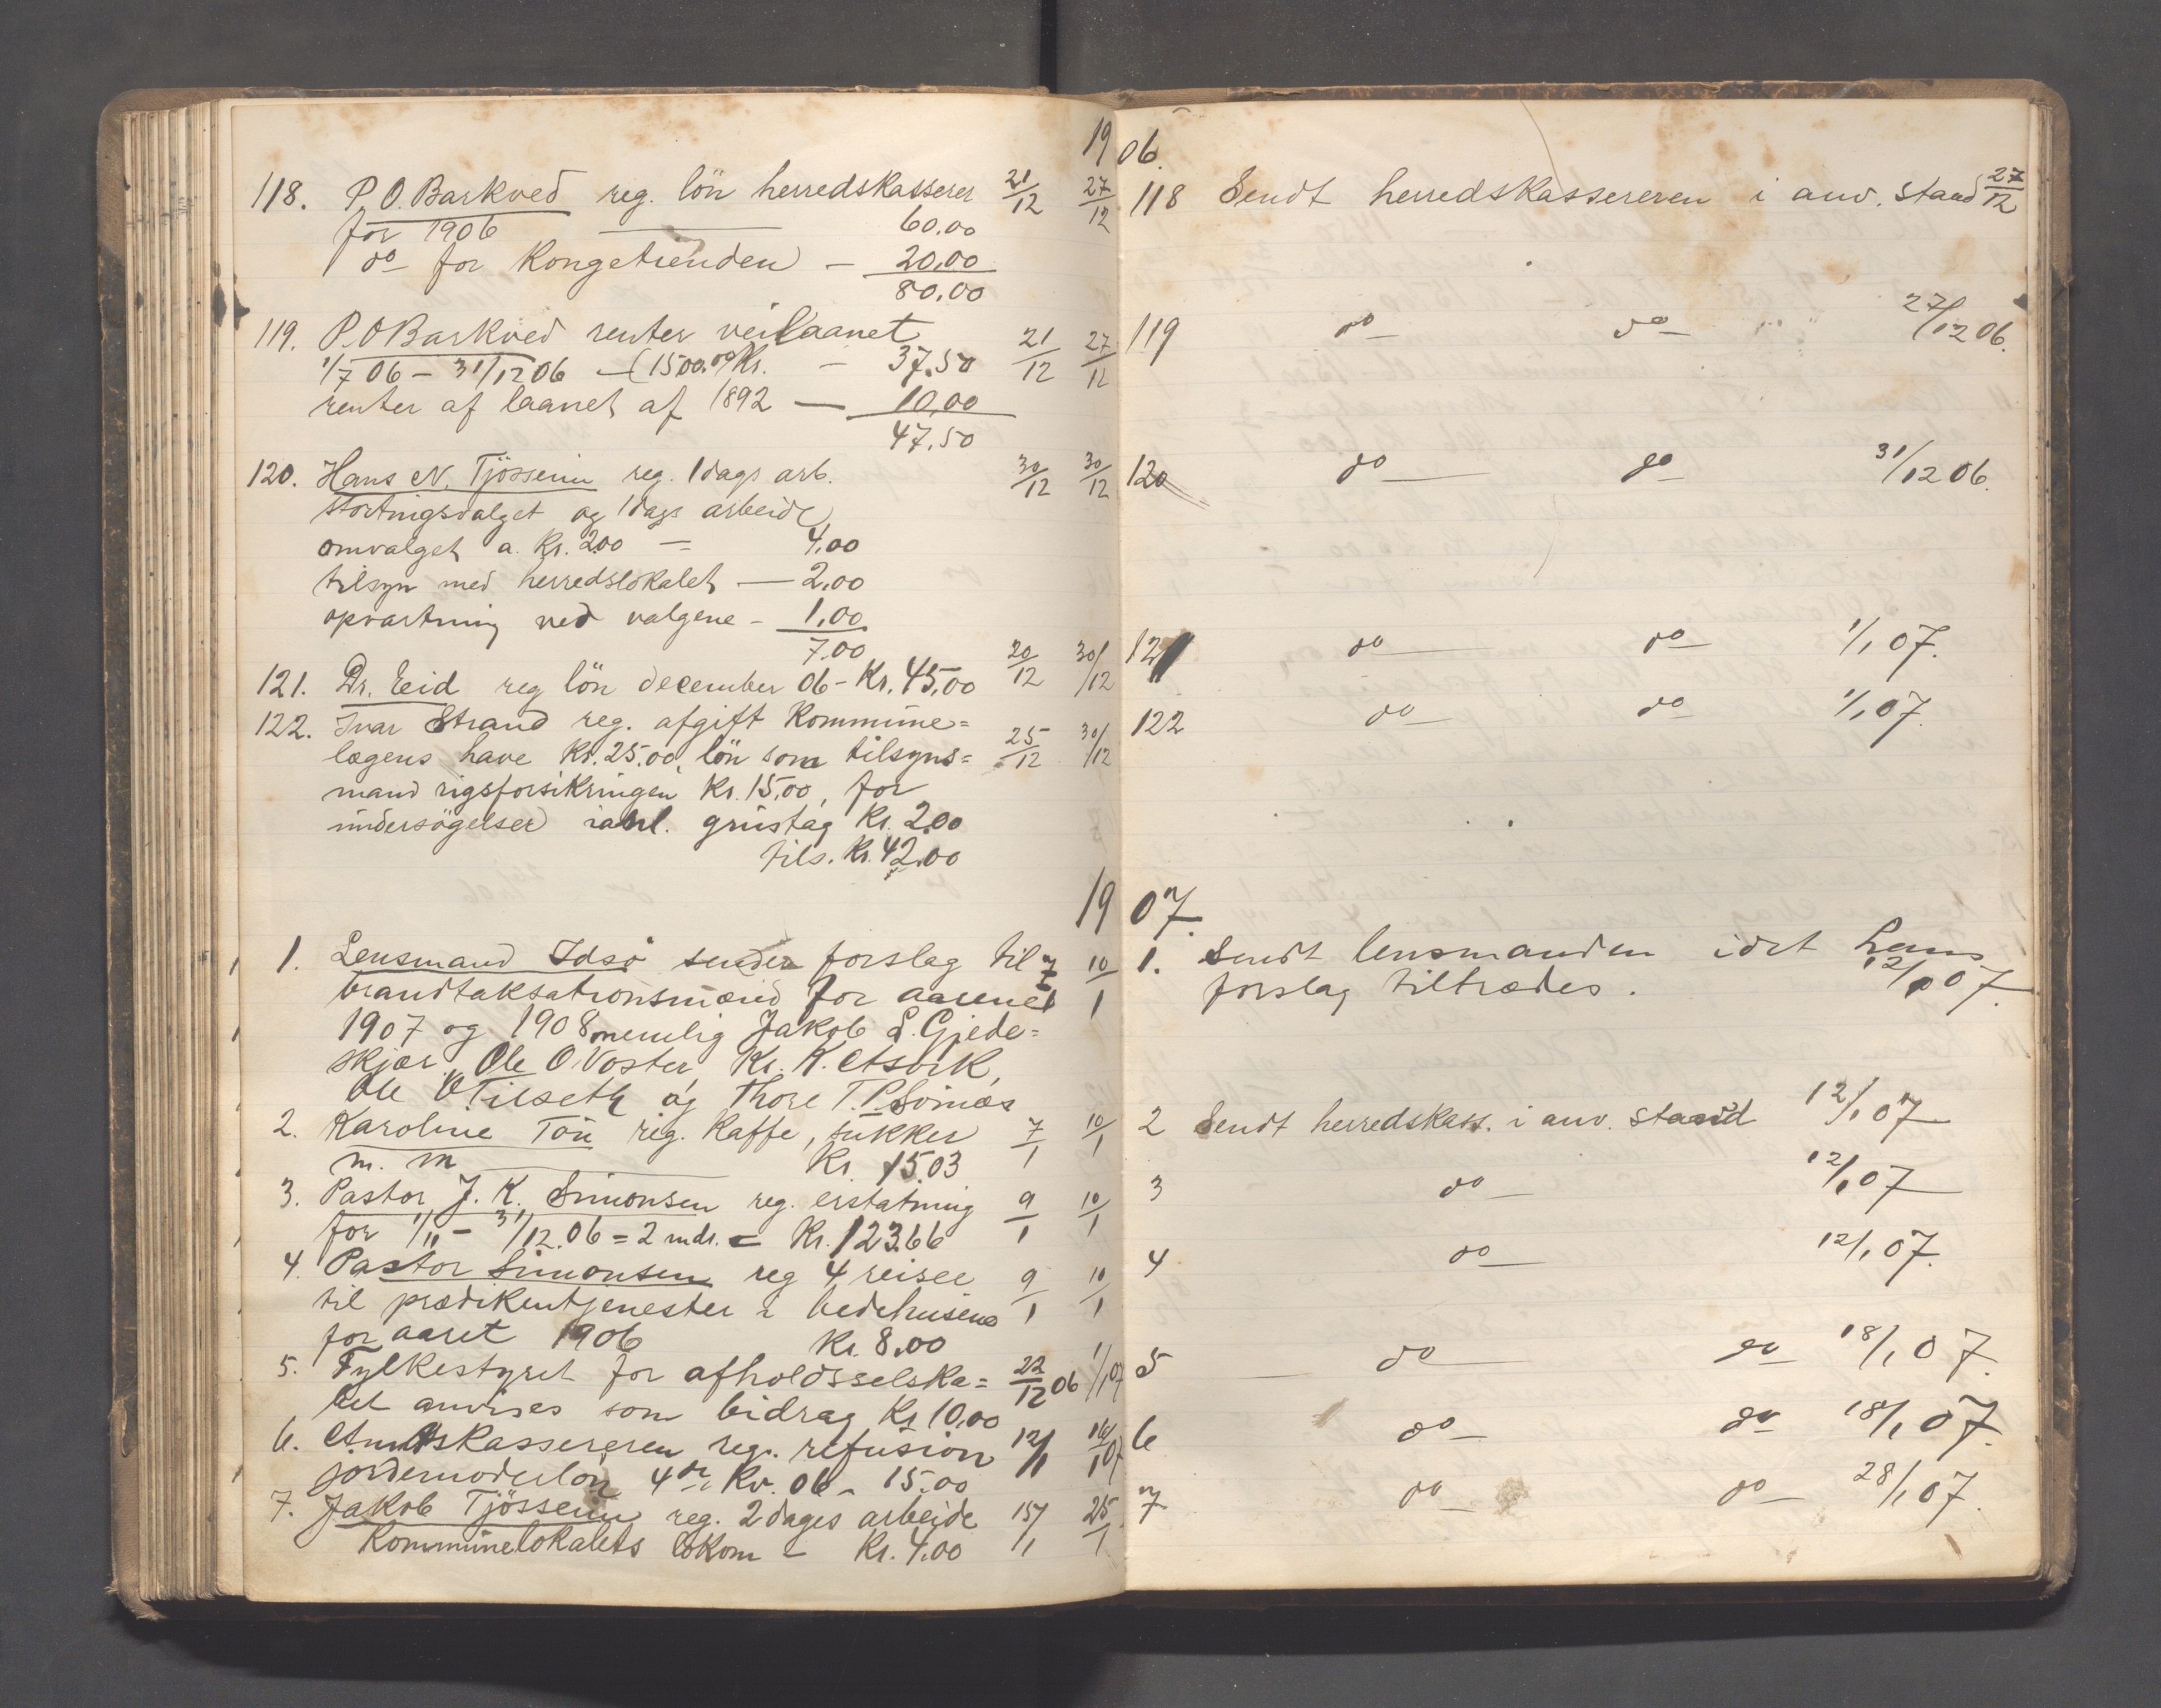 1906.
118. P. O. Barkved reg. lön herredskasserer 21/12 27/12
for 1906 — 60.00
do for Kongetienden — 20.00
80.00
119. P. O Barkved renter veilaanet 21/12 27/12
1/7 06 - 31/12 06 — (1500.00 Kr. — 37.50
renter af laanet af 1892 — 10,00
47.50
120. Hans N. Tjössem reg. 1 dags arb. 30/12 30/12
stortingsvalget og 1 dags arbeide
omvalget a. Kr. 2.00 — 4.00
tilsyn med herredslokalet — 2.00
opvartning ved valgene - 1,00
7.00
121. Dr. Eid reg lön december 06 - Kr. 45,00 20/12 30/12
122. Ivar Strand reg. afgift Kommune=
lægens have Kr. 25.00, lön som tilsyns= 25/12 30/12
mand rigsforsikringen Kr. 15,00, for
undersögelser grustag Kr. 2.00
tils. Kr. 42.00
118 Sendt herredskassereren i anv. stand 27/12
119 do do 27/12 06.
120 do do 31/12 06.
121 do do 1/1 07.
122 do do 1/1 07.
1907.
1. Lensmand Idsö sender forslag til 7/1 10/1
brandtaksationsmænd for aarene
1907 og 1908 nemlig Jakob L. Gjede=
skjær, Ole O Voster, Kr. K. Asvik,
Ole O Tilseth og Thore T. P. Sömes
2. Karoline Tou reg. Kaffe, sukker 7/1 10/1
m. m Kr. 15.03
3. Pastor J. K. Simonsen reg. erstatning 9/1 10/1
for 1/11 - 31/12. 06 = 2 mdr. = Kr. 123.66
4. Pastor Simonsen reg 4 reiser 9/1 10/1
til prædikentjenester i bedehusene
for aaret 1906 Kr. 8.00
5. Fylkestyret for afholdsselska= 22/12 06 1/1 07
bet anvises som bidrag Kr 10,00
6. Amtskassereren reg. refusion 12/1 16/1 07
jordemoderlön 4de Kv. 06 - 15.00
7. Jakob Tjössem reg. 2 dages arbeide 15/1 25/1
Kommunelokalets - Kr. 4.00
1. Sendt lensmanden idet hans
forslag tiltrædes. 12/1 07.
2 Sendt herredskass. i anv. stand 12/1 07
3 do 12/1 07
4 do 12/1 07.
5 do do 18/1 07.
6 do do 18/1 07.
7 do do 28/1 07.